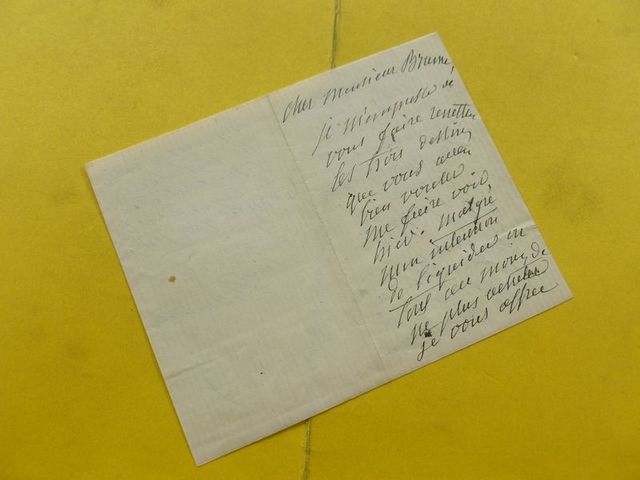 Cher Monsieur Brame,
je m'empresse de
vous faire remettre
les trois dessins
que vous avez
bien voulu
me faire voir
hier. malgré
mon intention
de liquider en
tout au moins de
ne plus acheter
je vous offre